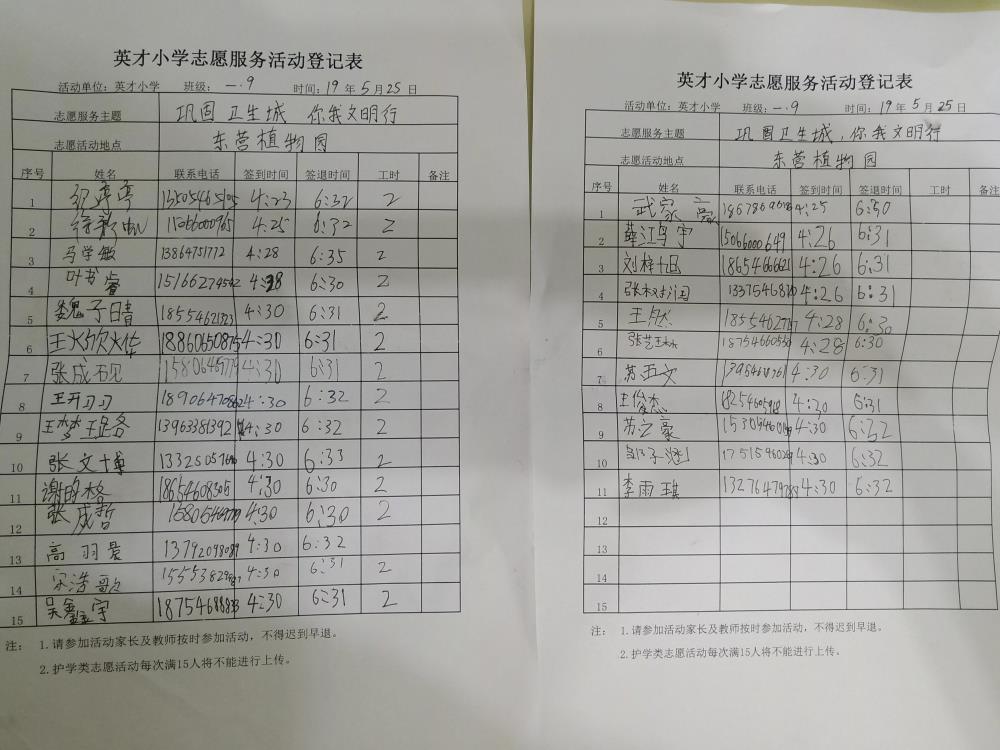 英才小学志愿服务活动登记表
活动单位：英才小学 班级：一.9 时间：19 年 5 月 25 日
志愿服务主题 巩固卫生城 你我文明行
志愿活动地点 东营植物园
序号 姓名 联系电话 签到时间 签退时间 工时 备注
1 4:23 6:32 2
2 15066000965 4:25 6:32 2
3 马学敏 13864751772 4:28 6:35 2
4 叶书睿 15166279542 4:28 6:30 2
5 魏子晴 18554621323 4:30 6:31 2
6 王炊烨 18860650875 4:30 6:31 2
7 张成砚 4:30 6:31 2
8 王开刃 4:30 6:32 2
9 王梦璐 13963381392 4:30 6:32 2
10 张文博 4:30 6:33 2
11 谢昀格 18654608305 4:30 6:30 2
12 张成哲 4:30 6:30 2
13 高羽景 13792098089 4:30 6:32
14 宋浩歌 4:30 6:31 2
15 吴鑫宇 4:30 6:31 2
注： 1.请参加活动家长及教师按时参加活动，不得迟到早退。
2.护学类志愿活动每次满15人将不能进行上传。
英才小学志愿服务活动登记表
活动单位：英才小学 班级：一.9 时间：19 年 5 月 25 日
志愿服务主题 巩固卫生城，你我文明行
志愿活动地点 东营植物园
序号 姓名 联系电话 签到时间 签退时间 工时 备注
1 武家豪 4:25 6:30
2 薛江雨宇 15066000649 4:26 6:31
3 刘梓 18654666621 4:26 6:31
4 张 4:26 6:31
5 王然 4:28 6:30
6 张艺 4:28 6:30
7 苏 4:30 6:31
8 王俊杰 6:31
9 苏之豪 4:30 6:32
10 4:30 6:32
11 李雨琪 4:30 6:32
12
13
14
15
注： 1.请参加活动家长及教师按时参加活动，不得迟到早退。
2.护学类志愿活动每次满15人将不能进行上传。